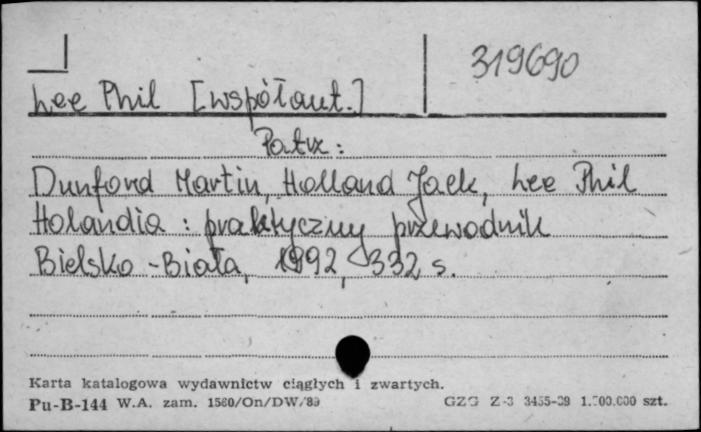 319690
Lee Phil [współaut.]
Patrz:
Dunford Martin, Holland Jack, Lee Phil
Holandia : praktyczny przewodnik
Bielsko-Biała, 1992, 332 s.
Karta katalogowa wydawnictw ciągłych i zwartych.
Pu-B-144 W.A. zam. 1560/On/DW/89 GZG Z-3 3455-89 1.500.000 szt.